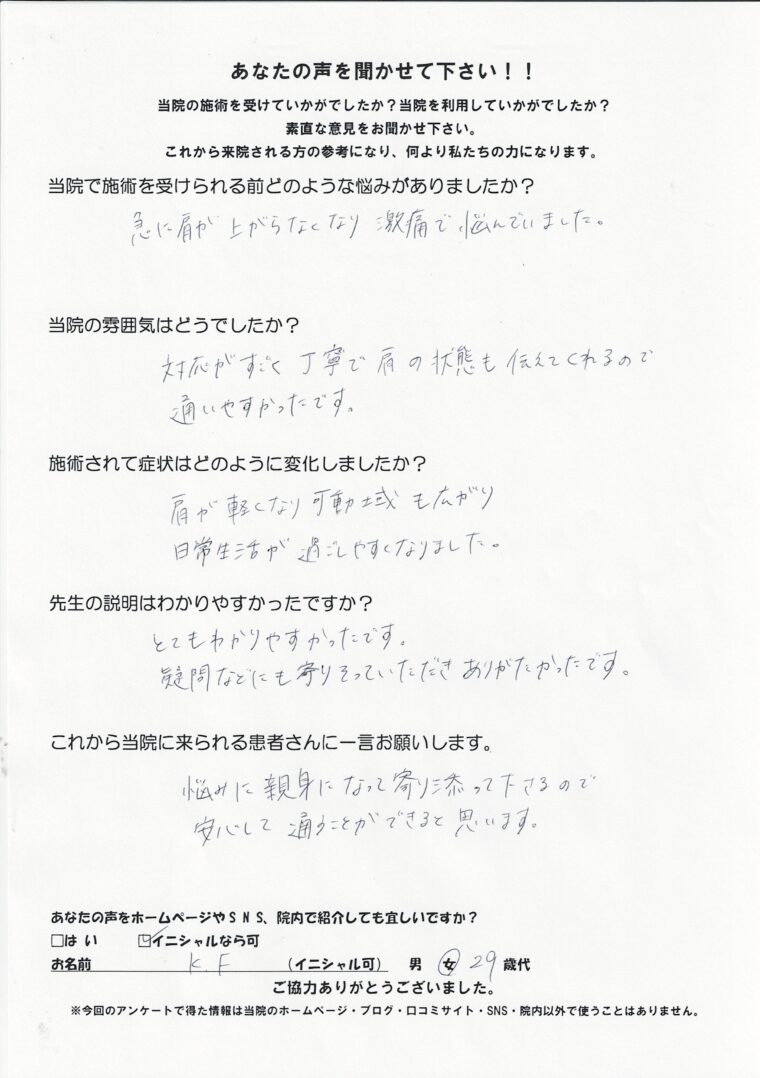 あなたの声を聞かせて下さい！！
当院の施術を受けていかがでしたか？当院を利用していかがでしたか？
素直な意見をお聞かせ下さい。
これから来院される方の参考になり、何より私たちの力になります。
当院で施術を受けられる前どのような悩みがありましたか？
急に肩が上がらなくなり激痛で悩んでいました。
当院の雰囲気はどうでしたか？
対応がすごく丁寧で肩の状態も伝えてくれるので
通いやすかったです。
施術されて症状はどのように変化しましたか？
肩が軽くなり可動域も広がり
日常生活が過ごしやすくなりました。
先生の説明はわかりやすかったですか？
とてもわかりやすかったです。
疑問などにも寄りそっていただきありがたかったです。
これから当院に来られる患者さんに一言お願いします。
悩みに親身になって寄り添って下さるので
安心して通うことができると思います。
あなたの声をホームページやＳＮＳ、院内で紹介しても宜しいですか？
□はい　☑イニシャルなら可
お名前　K.F　（イニシャル可）　男　女　29歳代
ご協力ありがとうございました。
※今回のアンケートで得た情報は当院のホームページ・ブログ・口コミサイト・SNS・院内以外で使うことはありません。